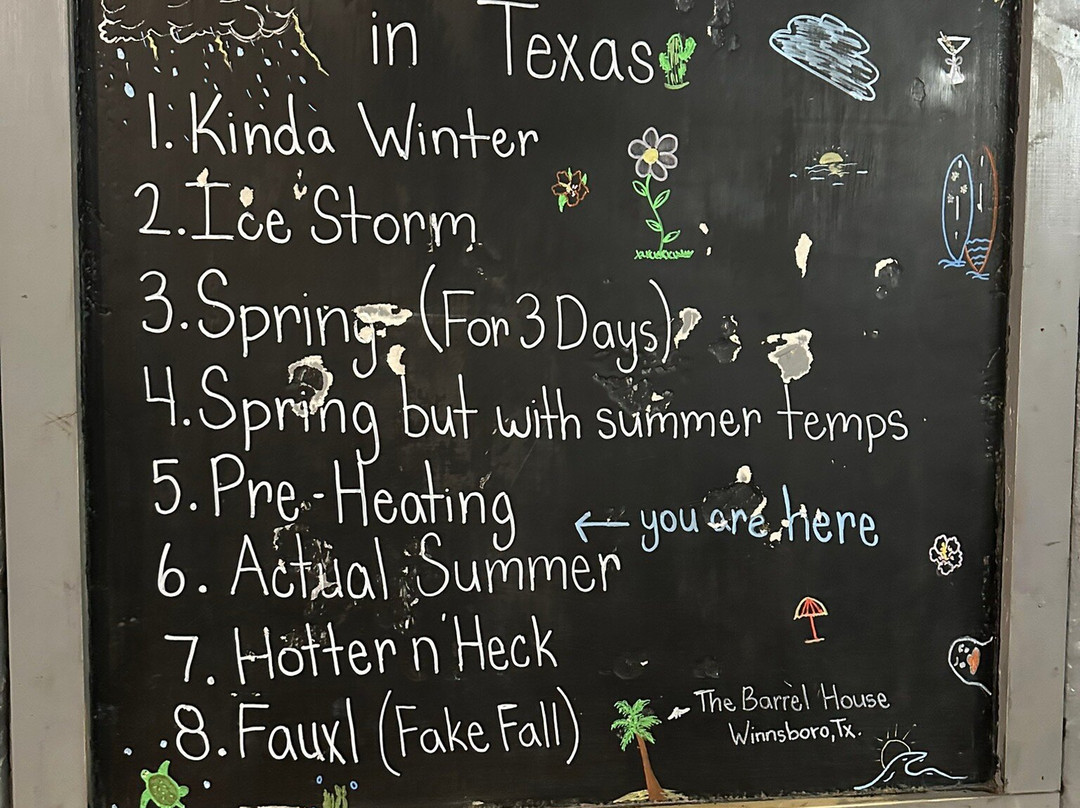 in Texas
1. Kinda Winter
2. Ice Storm
3. Spring (For 3 Days)
4. Spring but with summer temps
5. Pre-Heating
← you are here
6. Actual Summer
7. Hotter 'n' Heck
8. Fauxl (Fake Fall)
The Barrel House
Winnsboro, Tx.